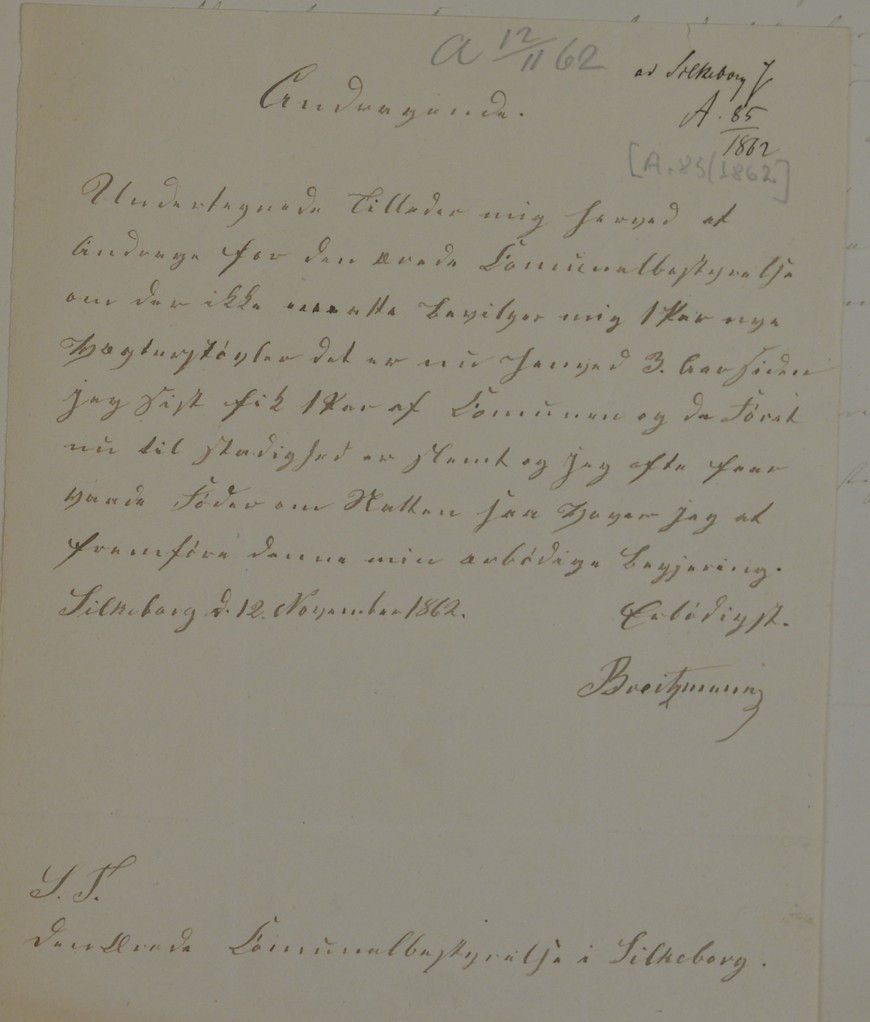 a 12/11 62
ad Silkeborg J
A. 85
1862
[A. 85/1862]
Andragende.
Undertegnede Tillader mig herved at
Andrage for den ærede Comunalbestyrelse
om der ikke maatte bevilges mig 1 Par nye
Vægterstøvler det er nu henved 3. Aar siden
jeg sist fik 1 Par af Comunen og da Föret
nu til stadighed er slemt og jeg ofte faar
vaade Födder om Natten saa vover jeg at
fremföre denne min ærbödige Begjering.
Silkeborg d. 12. November 1862.
Erbödigst.
Breitzmann
S. T.
den Ærede Comunalbestyrelse i Silkeborg.